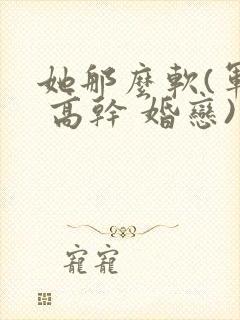 她那麼軟(軍
高幹 婚戀)
寵寵